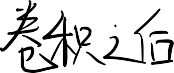 卷积之后